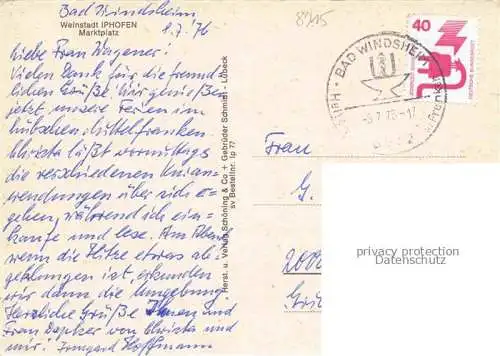 Bad Windsheim
8.7.76
Weinstadt IPHOFEN
Marktplatz
Liebe Frau Wagener!
Vielen Dank für die freund-
lichen Grüße. Wir genießen
jetzt unsere Ferien im
hübschen Mittelfranken.
Christa läßt vormittags
die verschiedenen Kuran-
wendungen über sich er-
gehen, während ich ein-
kaufe und lese. Am Abend
wenn die Hitze etwas ab-
geklungen ist, erkunden
wir dann die Umgebung
Herzliche Grüße Ihnen und
Frau von Christa und
mir! Irmgard Hoffmann
Herst. u. Verlag Schöning & Co. + Gebrüder Schmidt - Lübeck
sv Bestellnr. Ip 77
8215
BAD WINDSHEIM
-8.7.76-17
40
DEUTSCHE BUNDESPOST
Frau
G.
2000
privacy protection
Datenschutz